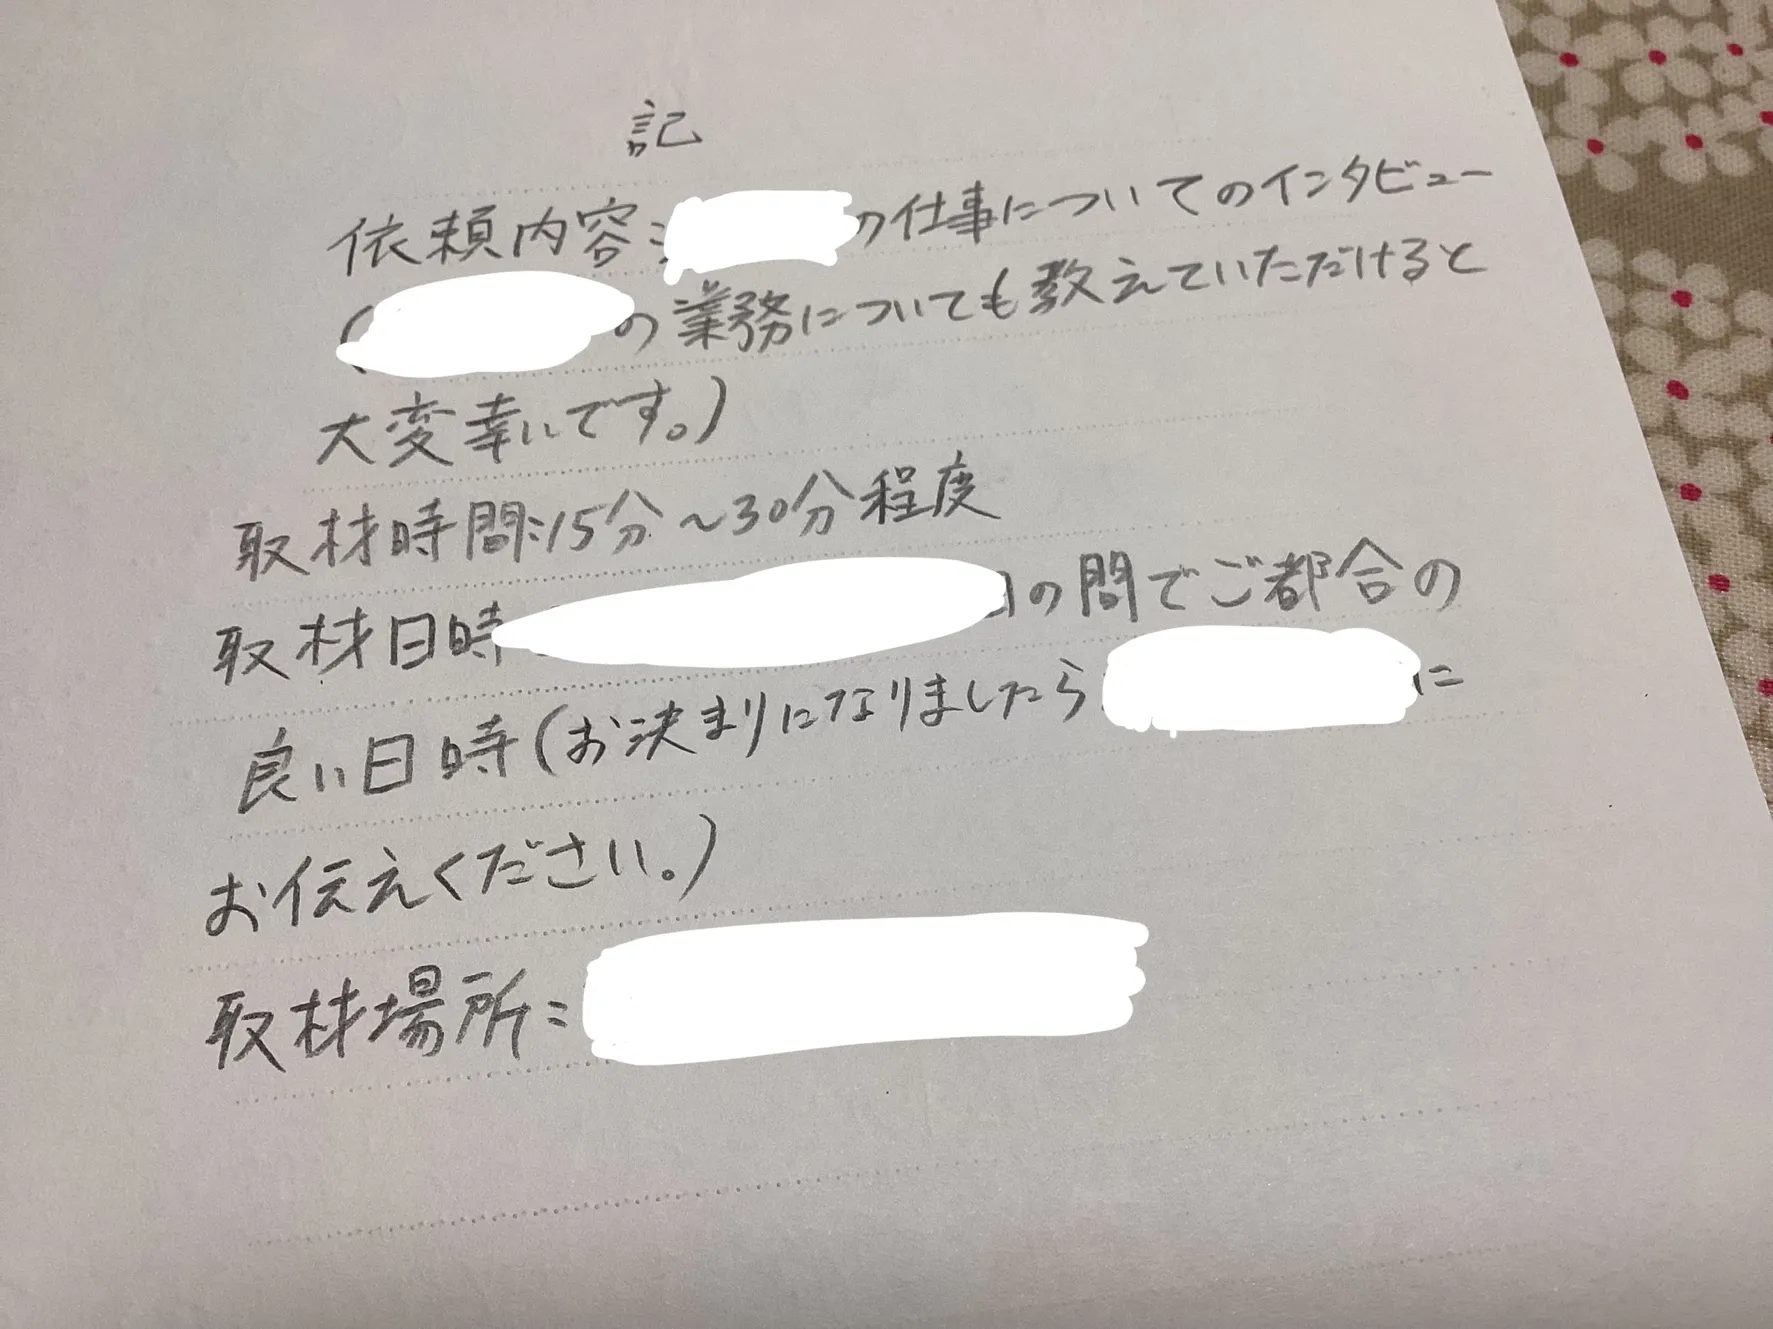 記
依頼内容: の仕事についてのインタビュー
( の業務についても教えていただけると
大変幸いです。)
取材時間:15分~30分程度
取材日時 の間でご都合の
良い日時(お決まりになりましたら に
お伝えください。)
取材場所: